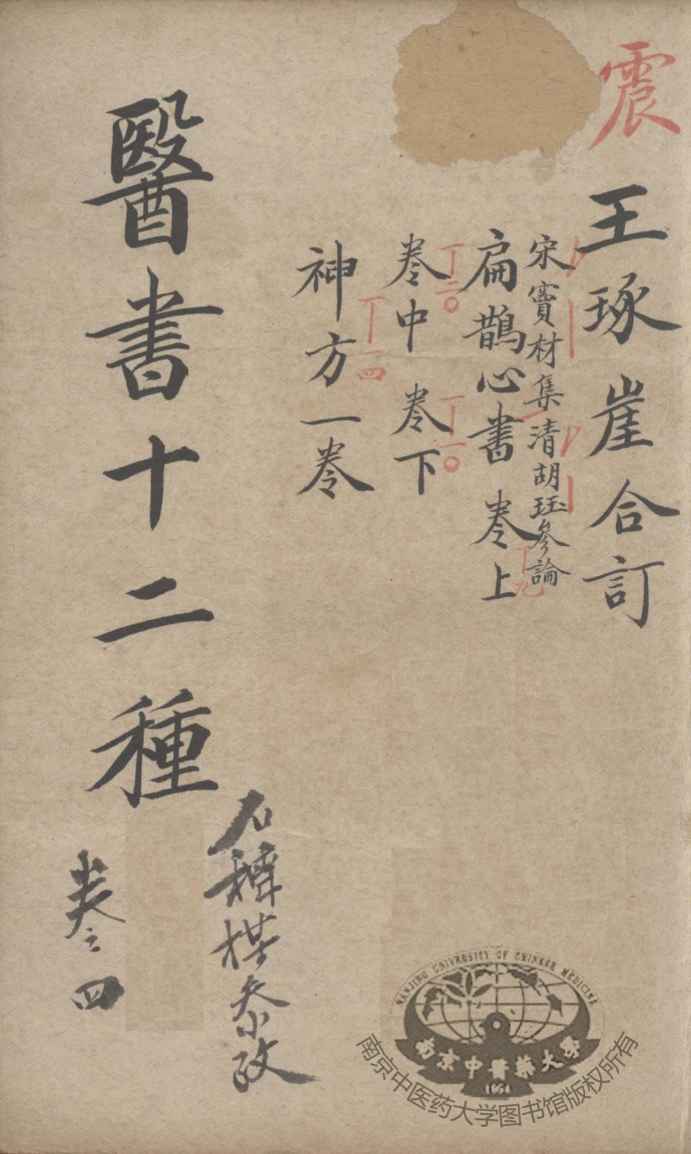 震
王琢崖合訂
宋竇材集清胡珏參論
扁鵲心書 卷上
丁九
卷中 卷下
丁二〇 丁二〇
神方一卷
丁一四
醫書十二種
石稺棋叅攷
卷之四
NANJING UNIVERSITY OF CHINESE MEDICINE
南京中醫藥大學
1954
南京中医药大学图书馆版权所有